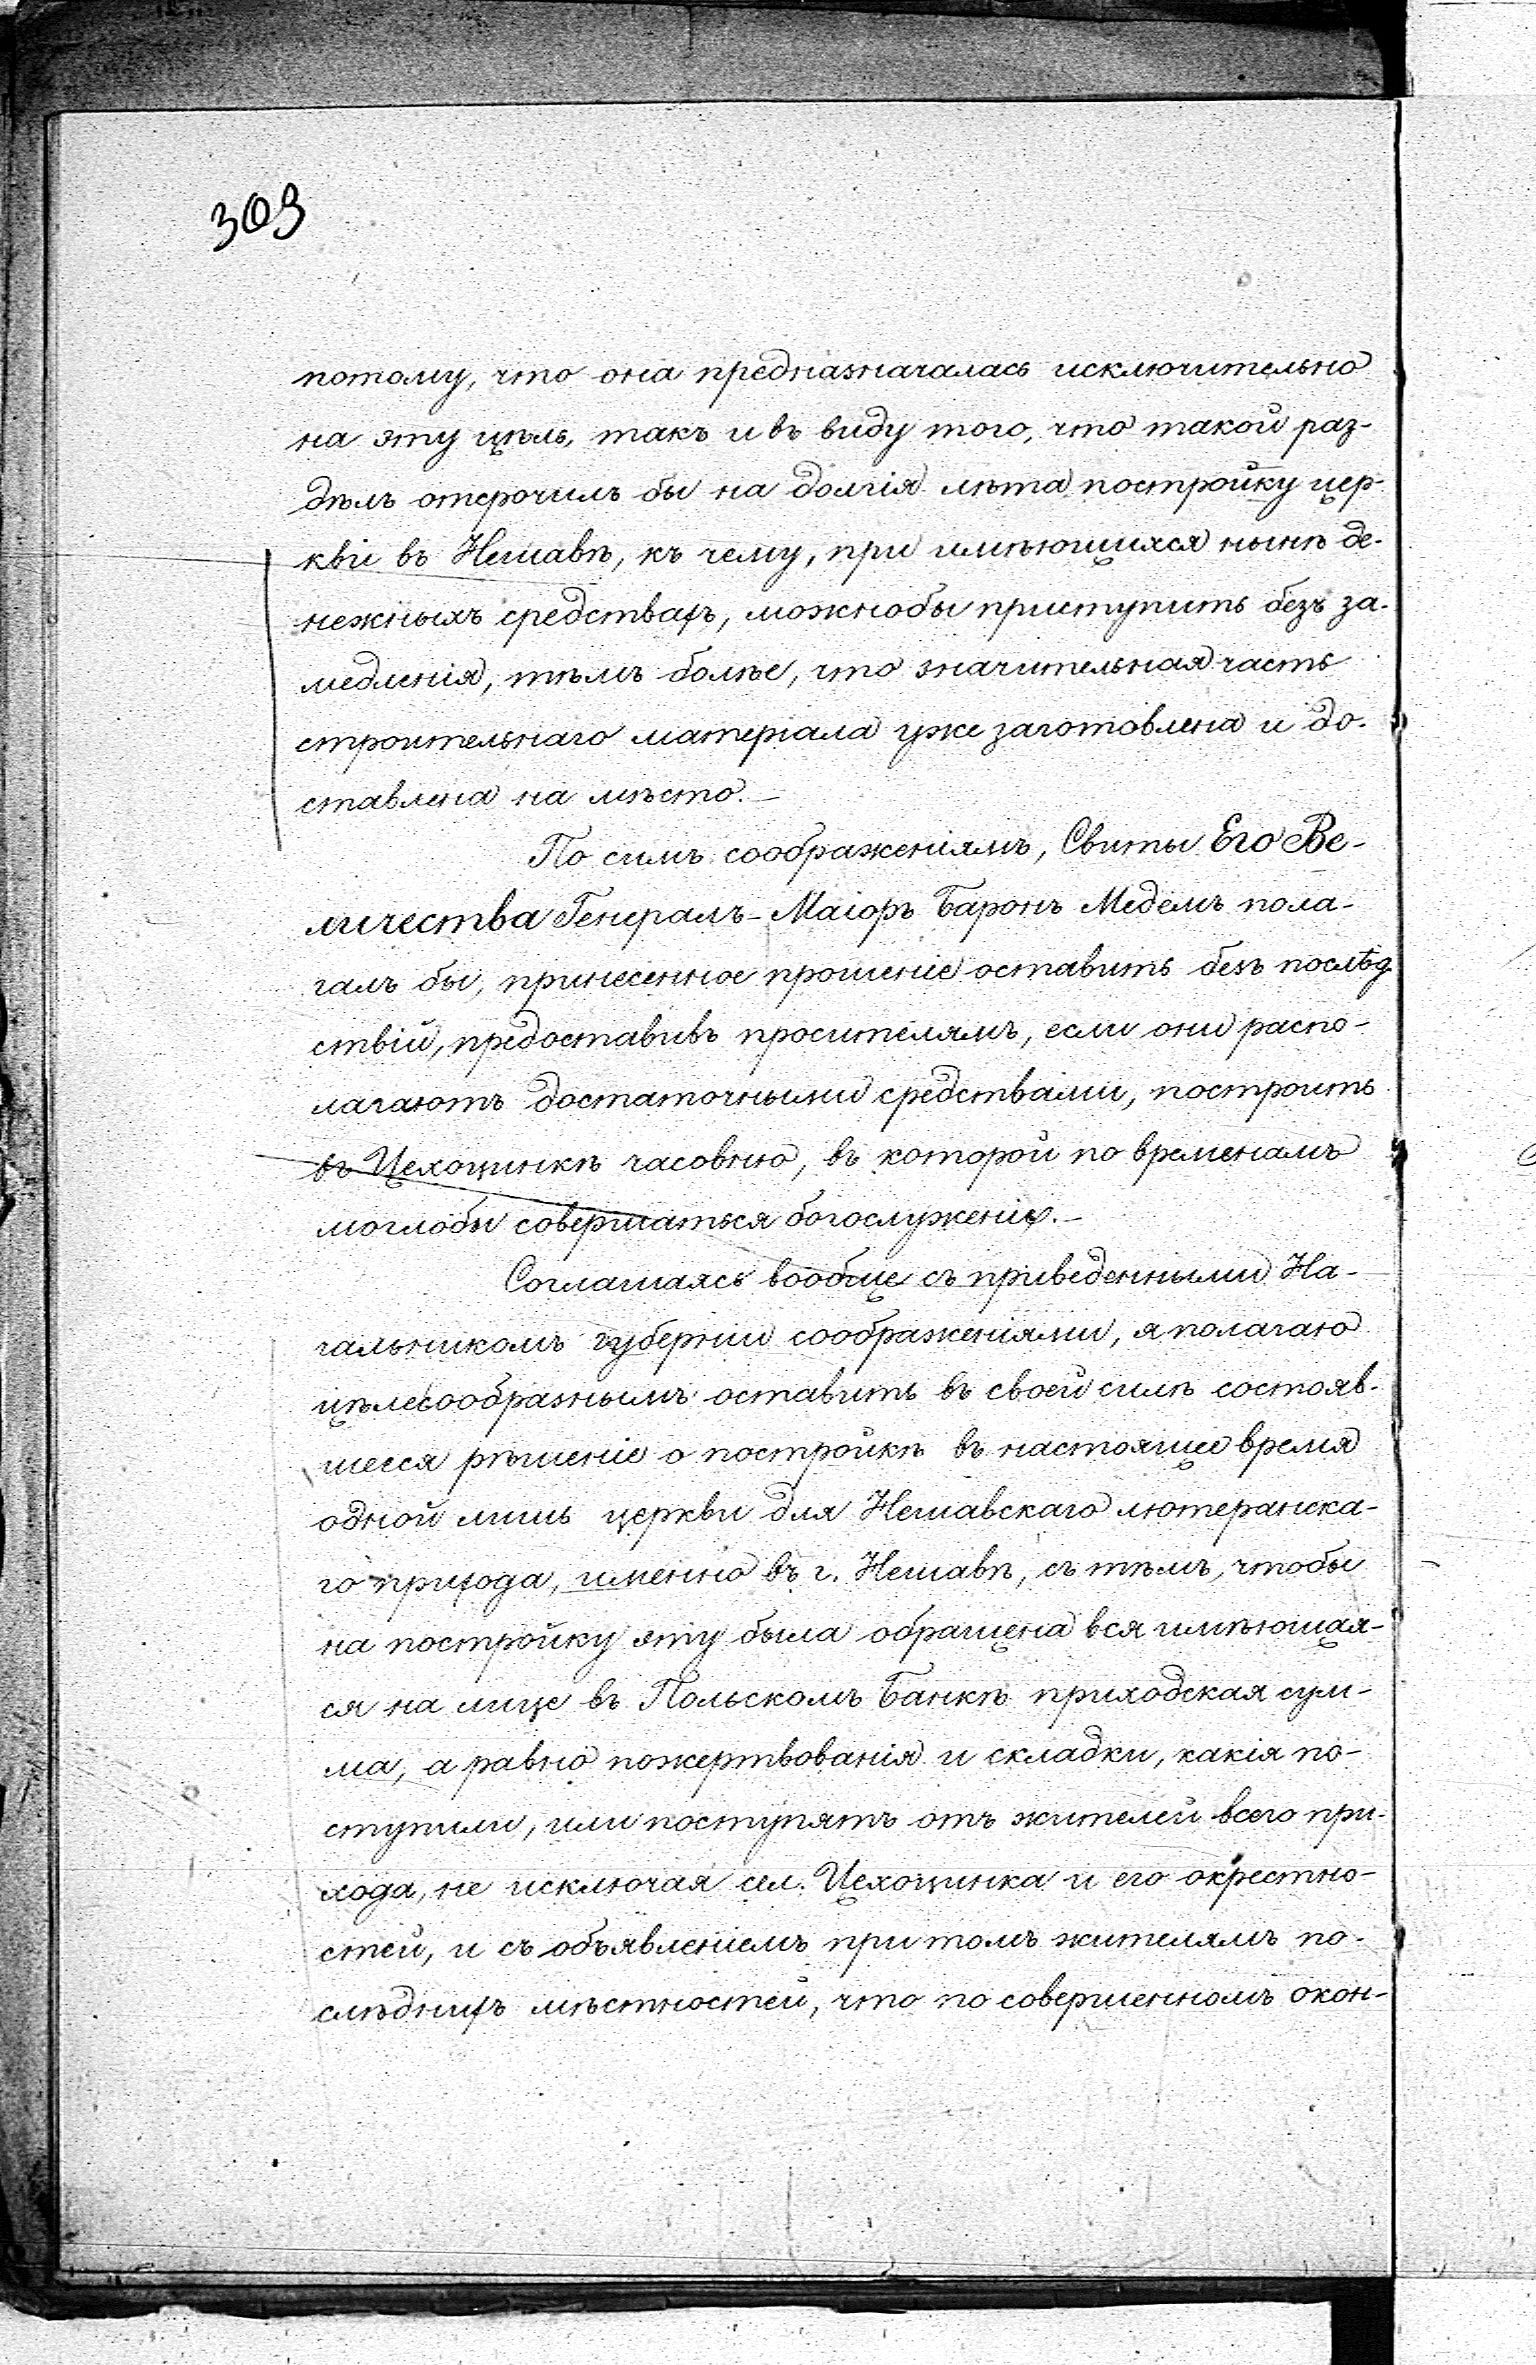 309
потому, что она предназначалась исключительно
на эту цѣль, такъ и въ виду того, что такой раз-
дѣлъ отсрочилъ бы на долгія лѣта постройку цер-
кви въ Нешавѣ, къ чему, при имѣющихся нынѣ де-
нежныхъ средствахъ, можнобы приступить безъ за-
медленія, тѣмъ болѣе, что значительная часть
строительнаго матеріала уже заготовлена и до-
ставлена на мѣсто.–
По симъ соображеніямъ, Свиты Его Ве-
личества Генералъ-Маіоръ Баронъ Медемъ пола-
галъ бы, принесенное прошеніе оставить безъ послѣд
ствій, предоставивъ просителямъ, если они распо-
лагаютъ достаточными средствами, построить
въ Цехоцинкѣ часовню, въ которой по временамъ
моглобы совершаться богослуженіе.–
Соглашаясь вообще съ приведенными На-
чальникомъ губерніи соображеніями, я полагаю
цѣлесообразнымъ оставить въ своей силѣ состояв-
шееся рѣшеніе о постройкѣ въ настоящее время
одной лишь церкви для Нешавскаго лютеранска-
го прихода, именно въ г. Нешавѣ, съ тѣмъ, чтобы
на постройку эту была обращена вся имѣющая-
ся на лице въ Польскомъ Банкѣ приходская сум-
ма, а равно пожертвованія и складки, какія по-
ступили, или поступятъ отъ жителей всего при-
хода, не исключая сел. Цехоцинка и его окрестно-
стей, и съ объявленіемъ при томъ жителямъ по-
слѣднихъ мѣстностей, что по совершенномъ окон-